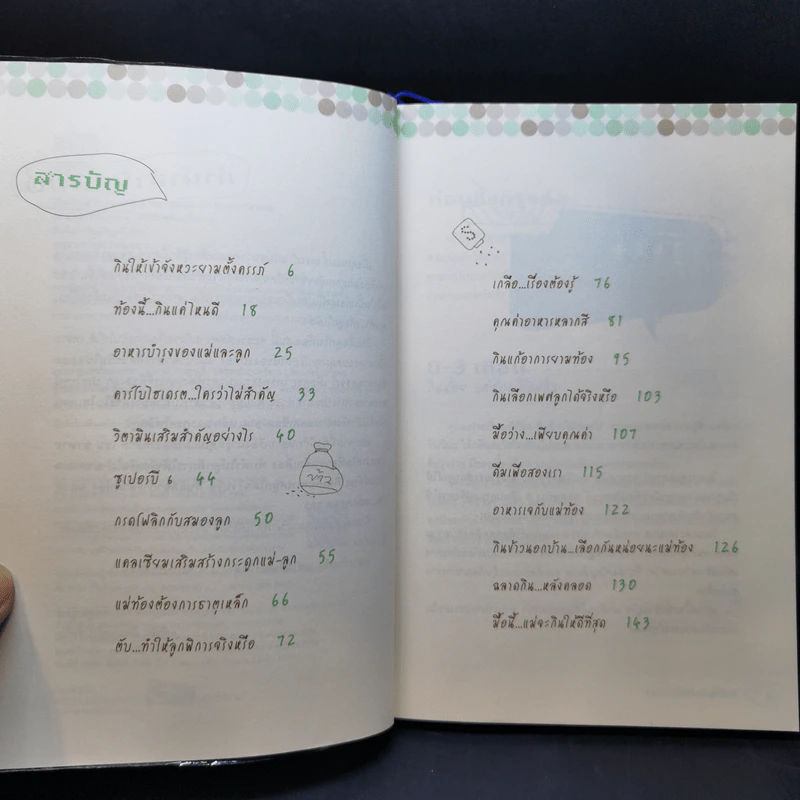 สารบัญ
กินให้เข้าจังหวะยามตั้งครรภ์ 6
ท้องนี้...กินแค่ไหนดี 18
อาหารบำรุงของแม่และลูก 25
คาร์โบไฮเดรต...ใครว่าไม่สำคัญ 33
วิตามินเสริมสำคัญอย่างไร 40
ซูเปอร์บี 6 44
ข้าว
กรดโฟลิกกับสมองลูก 50
แคลเซียมเสริมสร้างกระดูกแม่-ลูก 55
แม่ท้องต้องการธาตุเหล็ก 66
ตับ...ทำให้ลูกพิการจริงหรือ 72
S
เกลือ...เรื่องต้องรู้ 76
คุณค่าอาหารหลากสี 81
กินแก้อาการยามท้อง 95
กินเลือกเพศลูกได้จริงหรือ 103
มื้อว่าง...เพียบคุณค่า 107
ดื่มเพื่อสองเรา 115
อาหารเจกับแม่ท้อง 122
กินข้าวนอกบ้าน...เลือกกันหน่อยนะแม่ท้อง 126
ฉลาดกิน...หลังคลอด 130
มื้อนี้...แม่จะกินให้ดีที่สุด 143